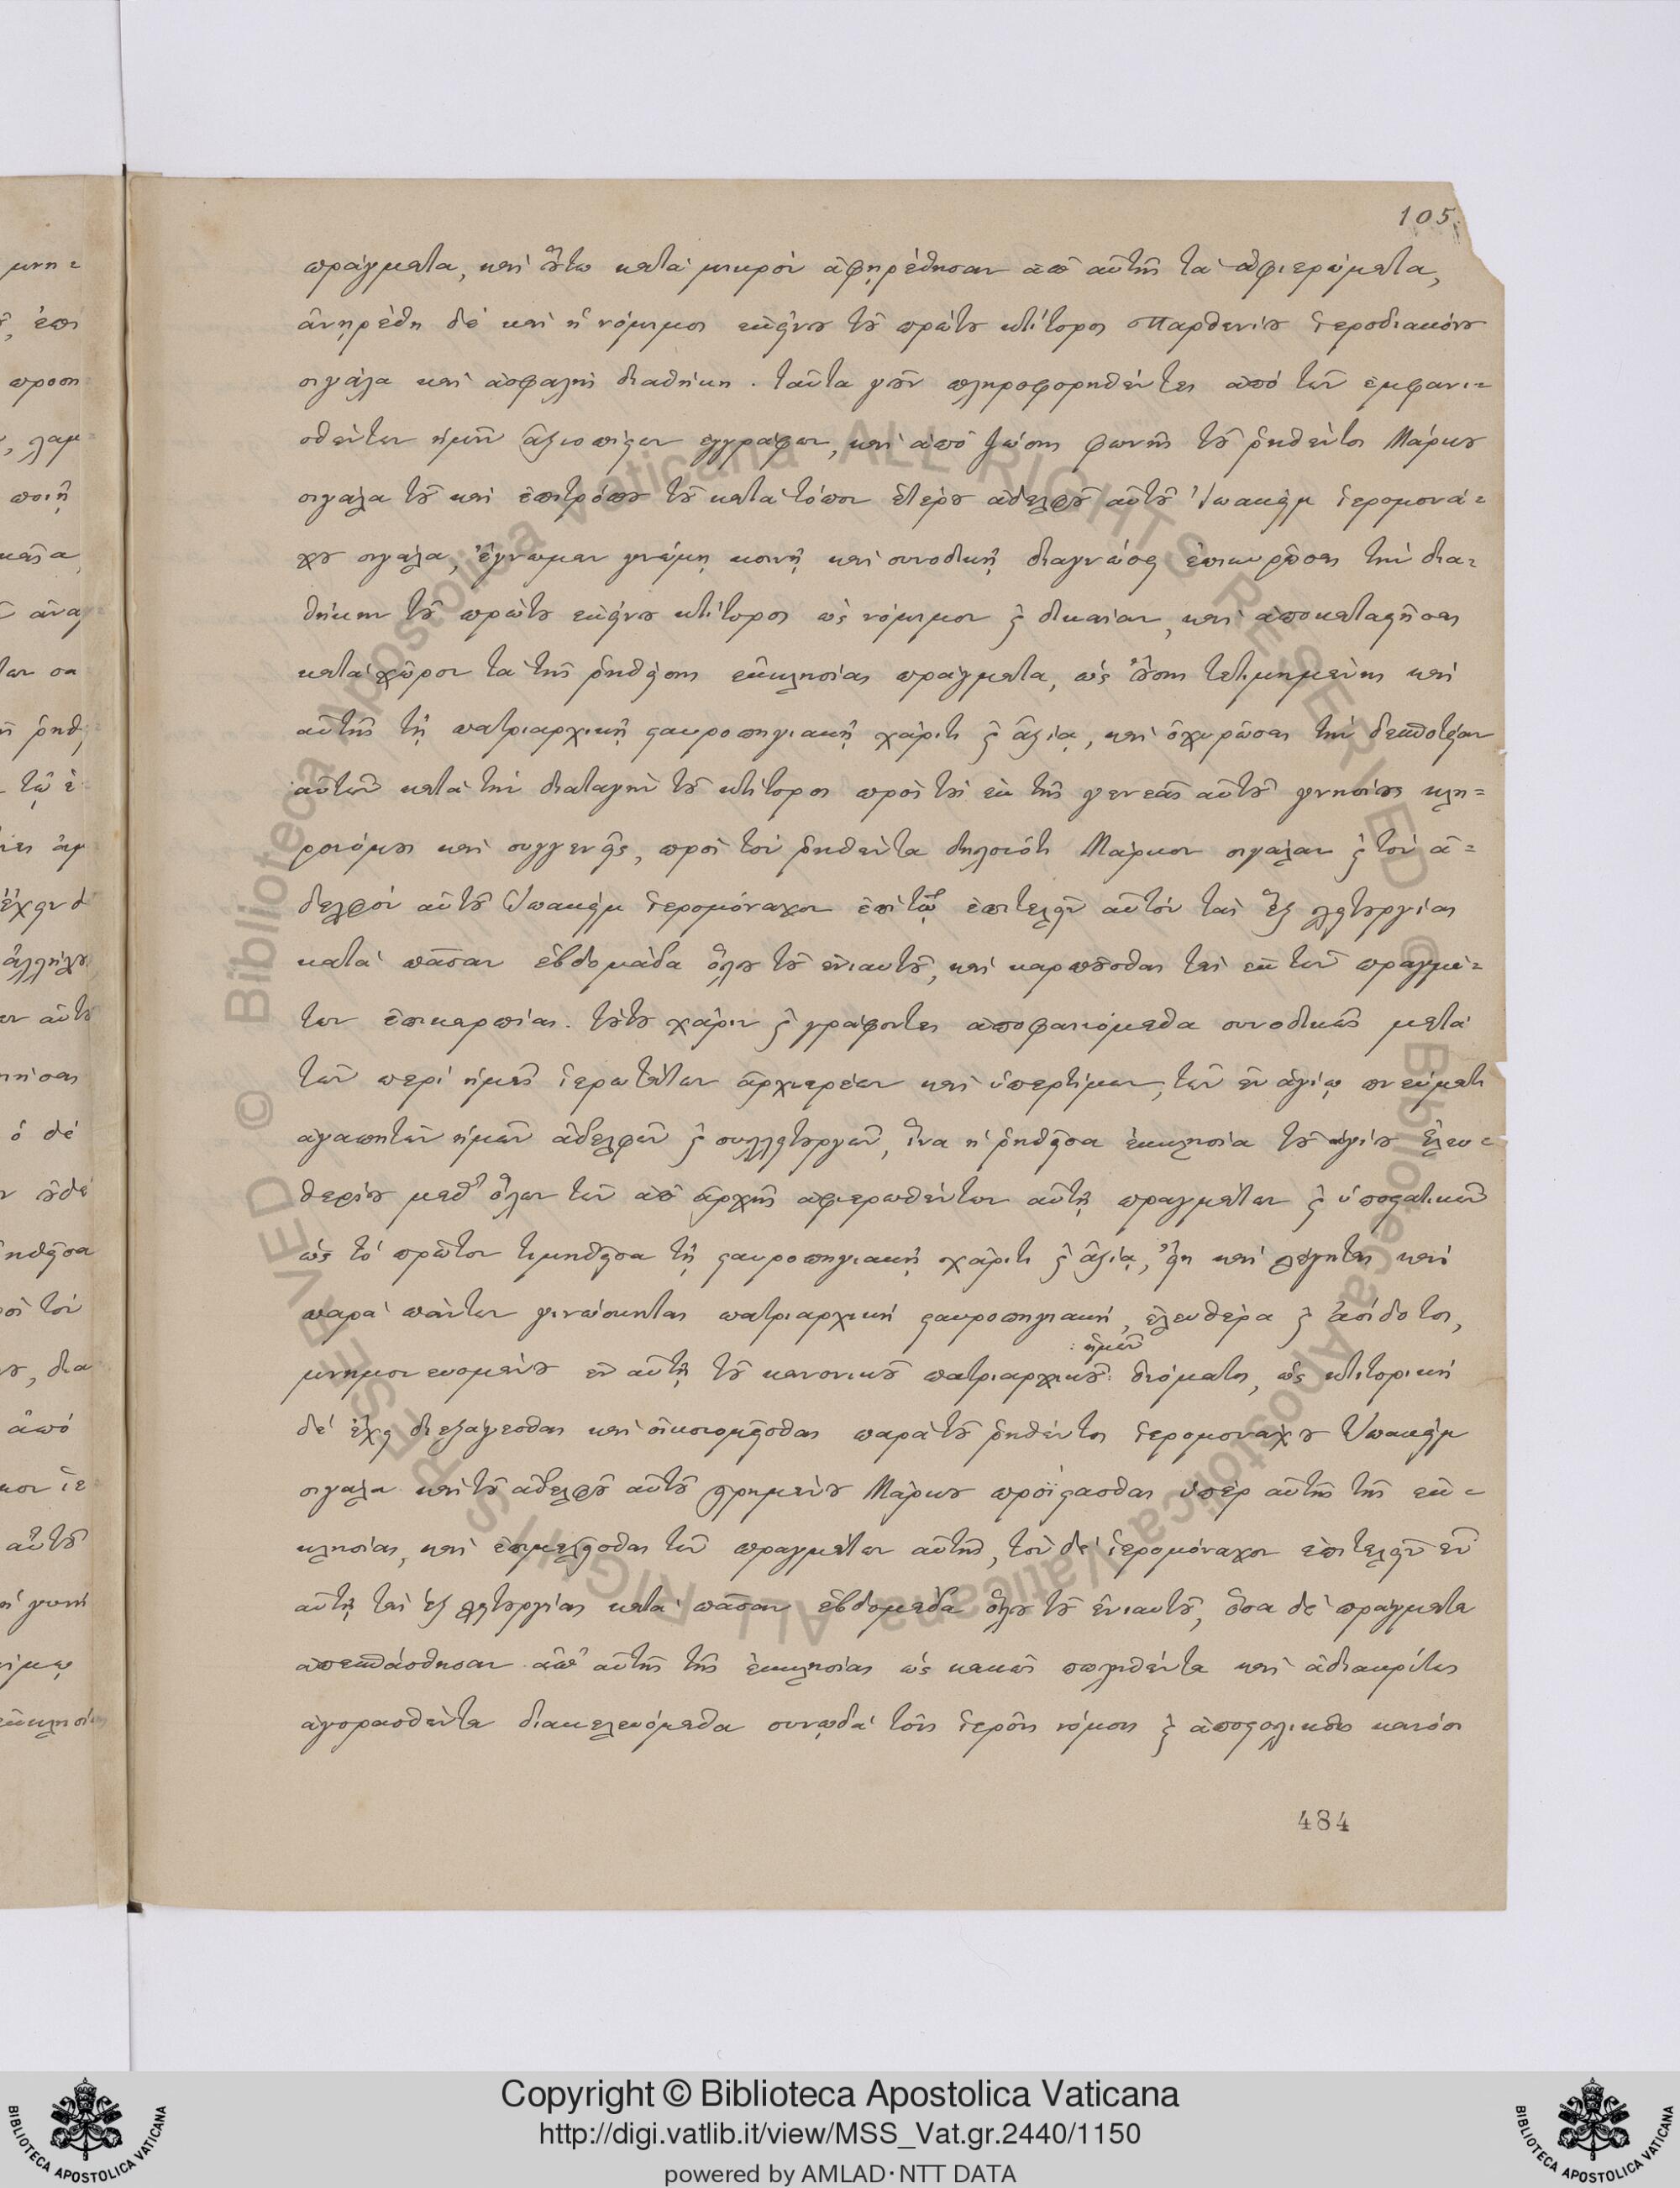 105.
πράγματα, καὶ οὕτω κατὰ μικρὸν ἀφῃρέθησαν ἀπ' αὐτῆς τὰ ἀφιερώματα,
ἀνῃρέθη δὲ καὶ ἡ νόμιμος ἐκείνου τοῦ πρώτου κτίτορος Παρθενίου ἱεροδιακόνου
σιγάλα καὶ ἀσφαλὴς διαθήκη. ταῦτα γοῦν πληροφορηθέντες ἀπὸ τῶν ἐμφανι=
σθέντων ἡμῖν ἀξιοπίστων ἐγγράφων, καὶ ἀπὸ ζώσης φωνῆς τοῦ ῥηθέντος Μάρκου
σιγάλα τοῦ καὶ ἐπιτρόπου τοῦ κατὰ τόπον ἑτέρου ἀδελφοῦ αὐτοῦ Ἰωακεὶμ ἱερομονά=
χου σιγάλα, ἔγνωμεν γνώμῃ κοινῇ καὶ συνοδικῇ διαγνώσει ἐπικυρῶσαι τὴν δια=
θήκην τοῦ πρώτου ἐκείνου κτίτορος ὡς νόμιμον καὶ δικαίαν, καὶ ἀποκαταστῆσαι
κατὰ χῶρον τὰ τῆς ῥηθείσης ἐκκλησίας πράγματα, ὡς οὔσης τετιμημένης καὶ
αὐτῆς τῇ πατριαρχικῇ σταυροπηγιακῇ χάριτι καὶ ἀξίᾳ, καὶ ὀχυρῶσαι τὴν δεσποτείαν
αὐτῶν κατὰ τὴν διαταγὴν τοῦ κτίτορος πρὸς τοὺς ἐκ τῆς γενεᾶς αὐτοῦ γνησίους κλη=
ρονόμους καὶ συγγενεῖς, πρὸς τὸν ῥηθέντα δηλονότι Μάρκον σιγάλαν καὶ τὸν ἀ=
δελφὸν αὐτοῦ Ἰωακεὶμ ἱερομόναχον ἐπὶ τῷ ἐπιτελεῖν αὐτὸν τὰς ἓξ λειτουργίας
κατὰ πᾶσαν ἑβδομάδα ὅλου τοῦ ἐνιαυτοῦ, καὶ καρποῦσθαι τὰς ἐκ τῶν πραγμά=
των ἐπικαρπίας. τούτου χάριν καὶ γράφοντες ἀποφαινόμεθα συνοδικῶς μετὰ
τῶν περὶ ἡμᾶς ἱερωτάτων ἀρχιερέων καὶ ὑπερτίμων, τῶν ἐν ἁγίῳ πνεύματι
ἀγαπητῶν ἡμῶν ἀδελφῶν καὶ συλλειτουργῶν, ἵνα ἡ ῥηθεῖσα ἐκκλησία τοῦ ἁγίου Ἐλευ=
θερίου μεθ' ὅλων τῶν ἀπ' ἀρχῆς ἀφιερωθέντων αὐτῇ πραγμάτων καὶ ὑποστατικῶν
ὡς τὸ πρῶτον τιμηθεῖσα τῇ σταυροπηγιακῇ χάριτι καὶ ἀξίᾳ, εἴη καὶ λέγηται καὶ
παρὰ πάντων γινώσκηται πατριαρχικὴ σταυροπηγιακή, ἐλευθέρα καὶ ἀσύδοτος,
μνημονευομένου ἐν αὐτῇ τοῦ κανονικοῦ πατριαρχικοῦ :ἡμῶν: ὀνόματος, ὡς κτιτορικὴ
δὲ ἔχῃ διεξάγεσθαι καὶ οἰκονομεῖσθαι παρὰ τοῦ ῥηθέντος ἱερομονάχου Ἰωακεὶμ
σιγάλα καὶ τοῦ ἀδελφοῦ αὐτοῦ εἰρημένου Μάρκου προΐστασθαι ὑπὲρ αὐτῆς τῆς ἐκ=
κλησίας, καὶ ἐπιμελεῖσθαι τῶν πραγμάτων αὐτῆς, τὸν δὲ ἱερομόναχον ἐπιτελεῖν ἐν
αὐτῇ τὰς ἓξ λειτουργίας κατὰ πᾶσαν ἑβδομάδα ὅλου τοῦ ἐνιαυτοῦ, ὅσα δὲ πράγματα
ἀπεσπάσθησαν ἀπ' αὐτῆς τῆς ἐκκλησίας ὡς κακῶς πωληθέντα καὶ ἀδιακρίτως
ἀγορασθέντα διακελευόμεθα συνῳδὰ τοῖς ἱεροῖς νόμοις καὶ ἀποστολικοῖς κανόσι
484
Copyright © Biblioteca Apostolica Vaticana
http://digi.vatlib.it/view/MSS_Vat.gr.2440/1150
powered by AMLAD·NTT DATA